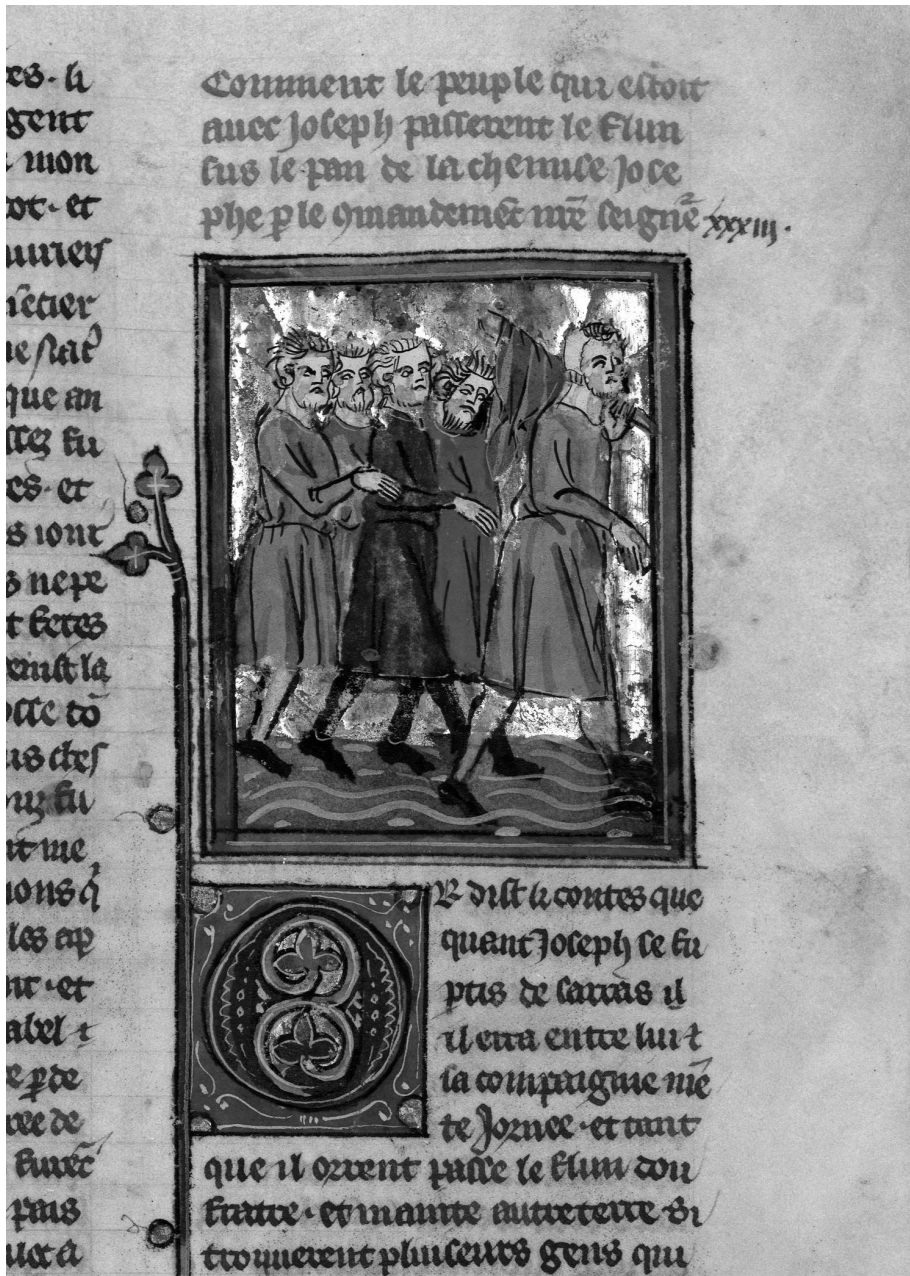 es · li
gent
mon
ot · et
uuriers
mestier
que an
ssez fu
es · et
s iour
s ne pe
t fetes
uenist la
us ches
fu
nt me
les ap
nt · et
abel
ree de
pais
Comment le peuple qui estoit
auec Joseph passerent le flun
sus le pan de la chemise Jose
phe p le 9mandemēt nr̄e seignr̄e xxxiij ·
OR dist li contes que
quant Joseph se fu
ptis de sarras il
il erra entre lui ⁊
la compaignie mē
te Jornee · et tant
que il orrent passe le flun dou
frate · et mainte autre terre · Si
trouuerent pluiseurs gens qui